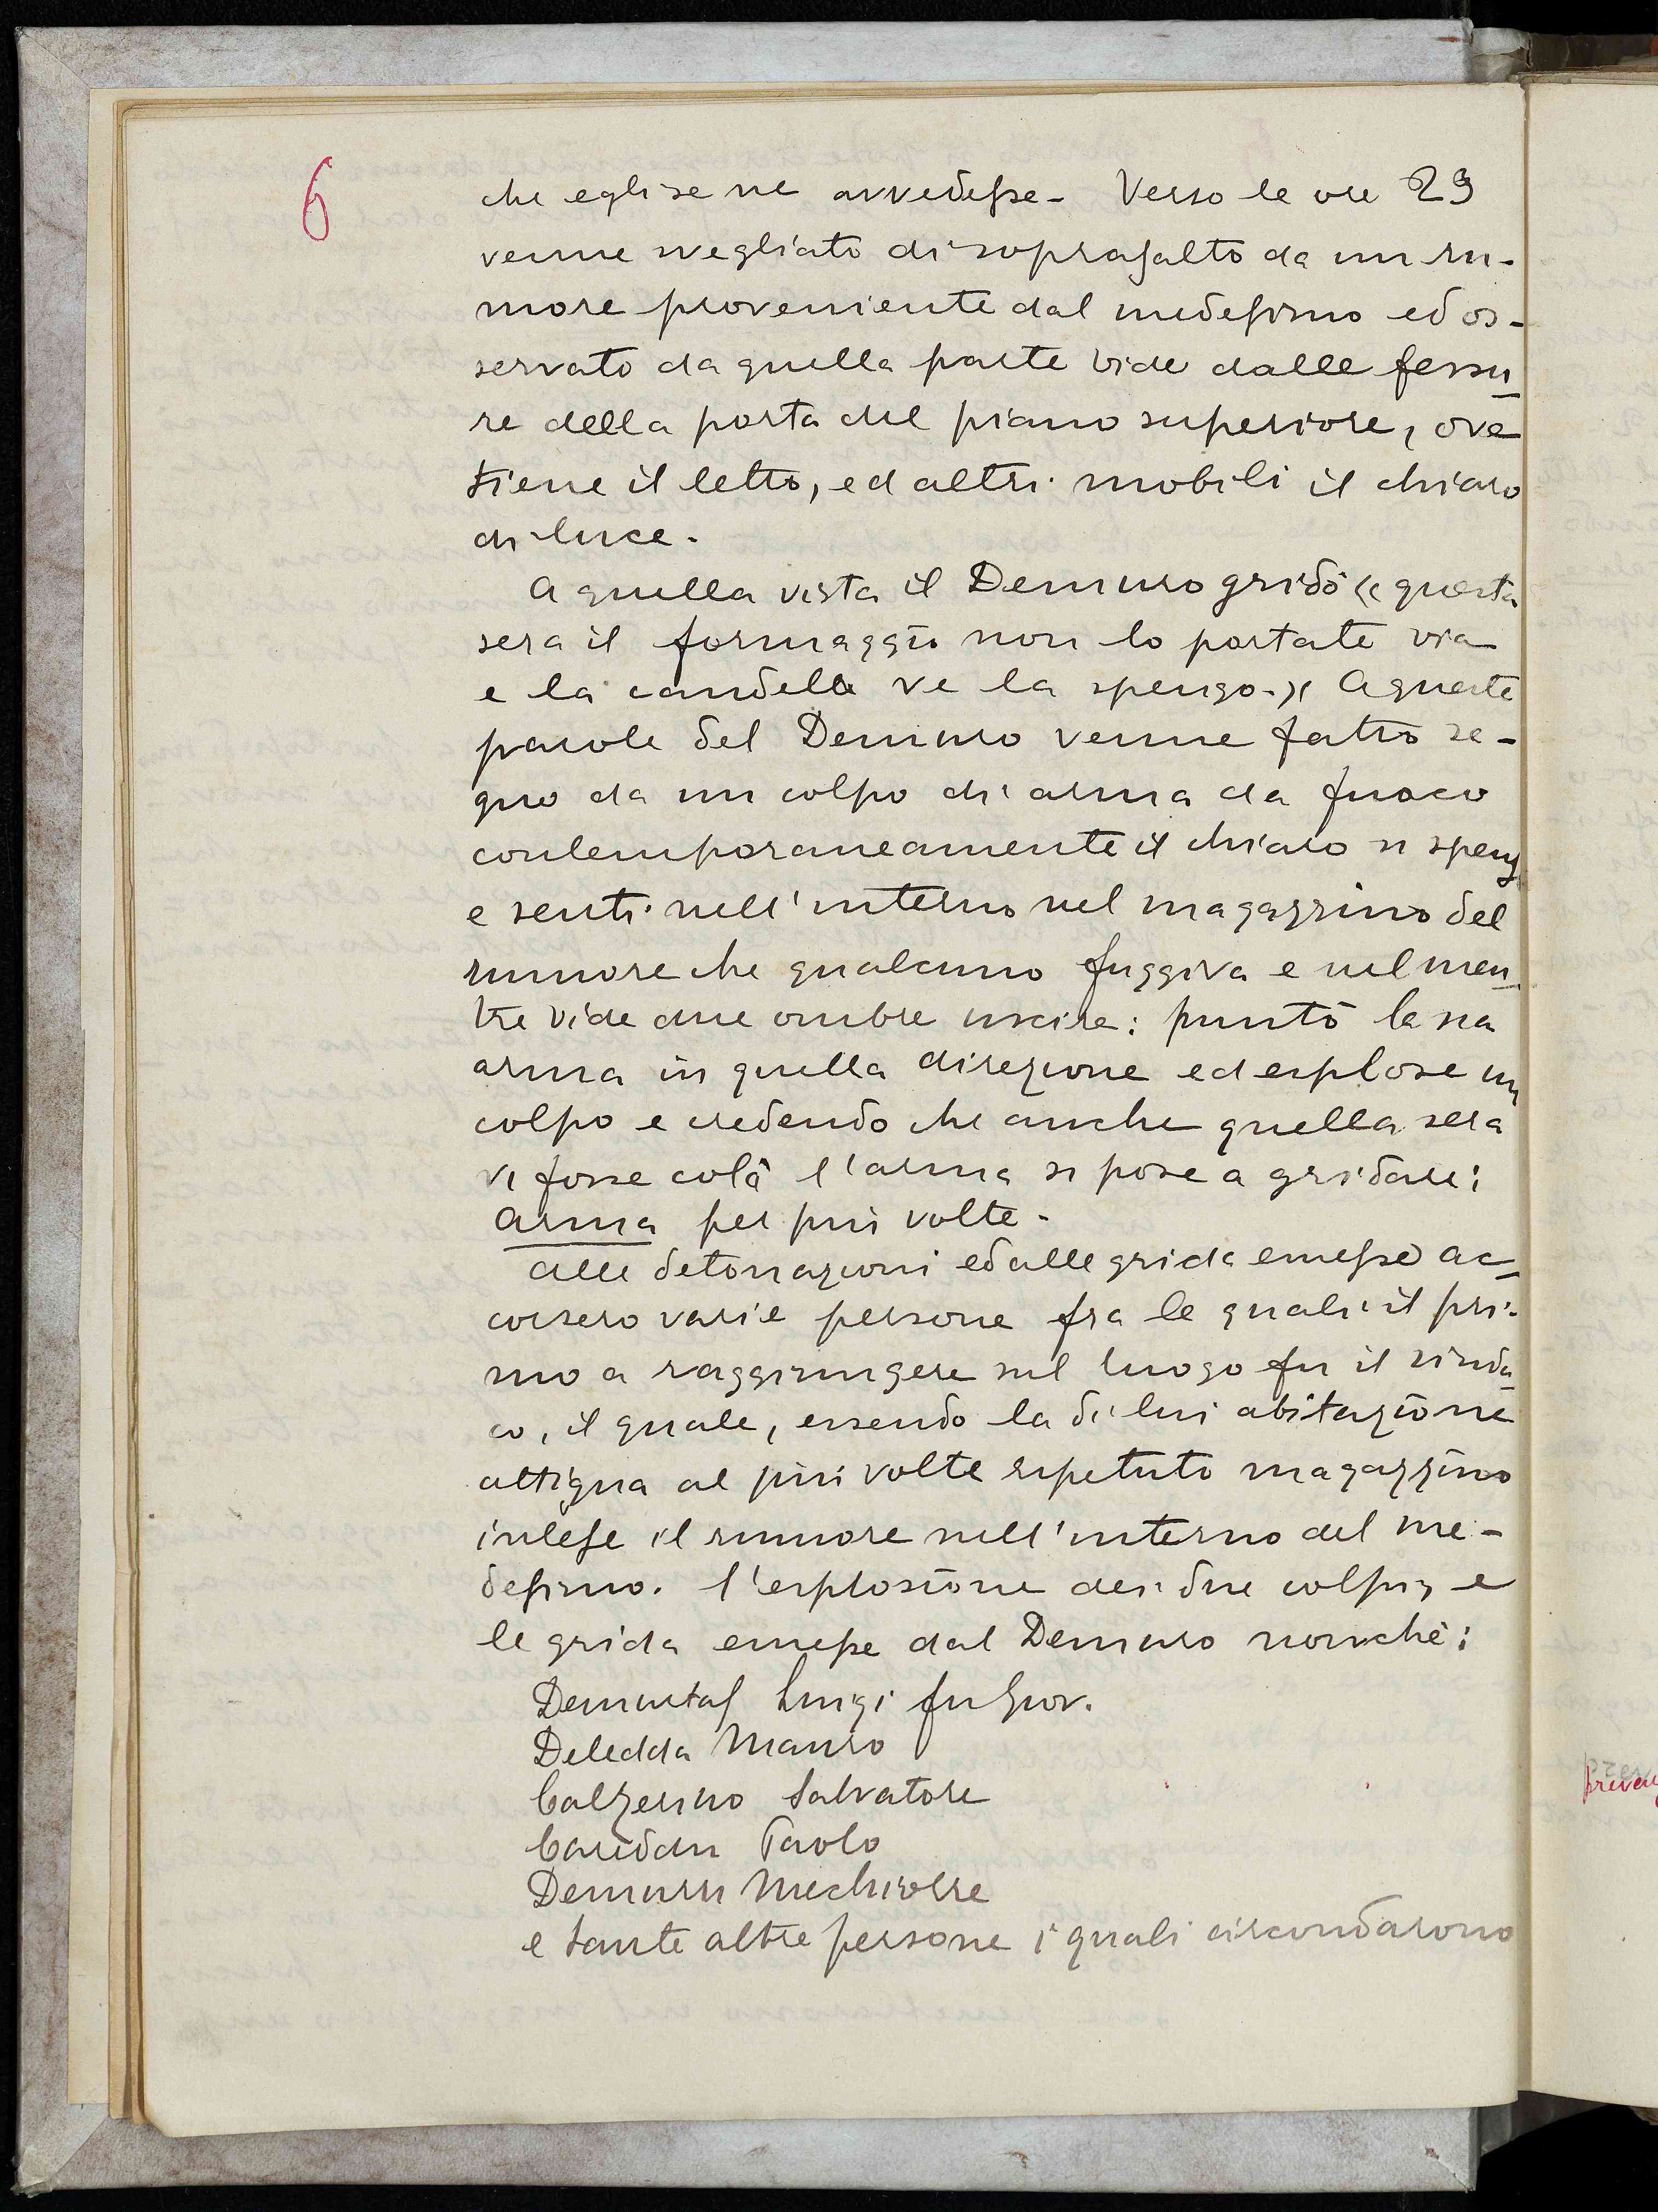 6
che egli se ne avvedesse - Verso le ore 23
venne svegliato di soprasalto da un ru-
more proveniente dal medesimo ed os-
servato da quella parte vide dalle fessu-
re della porta del piano superiore, ove
tiene il letto, ed altri mobili il chiaro
di luce.
A quella vista il Demuro gridò « questa
sera il formaggio non lo portate via
e la candela ve la spengo » A queste
parole del Demuro venne fatto se-
gno da un colpo di arma da fuoco
contemporaneamente il chiaro si
e sentì nell'interno nel magazzino del
rumore che qualcuno fuggiva e nel men-
tre vide due ombre uscire: puntò la sua
arma in quella direzione ed esplose un
colpo e credendo che anche quella sera
vi fosse colà l'arma si pose a gridare:
arma per più volte.
Alle detonazioni ed alle grida emesse ac-
corsero varie persone fra le quali il pri-
mo a raggiungere sul luogo fu il sinda-
co, il quale, essendo la di lui abitazione
attigua al più volte ripetuto magazzino
intese il rumore nell'interno del me-
desimo. l'esplosione dei due colpi, e
le grida emesse dal Demuro nonchè:
Demurtas Luigi fu Giov.
Deledda Mauro
Salvatore
Paolo
Demuru Mechiorre
e tante altre persone i quali circondarono